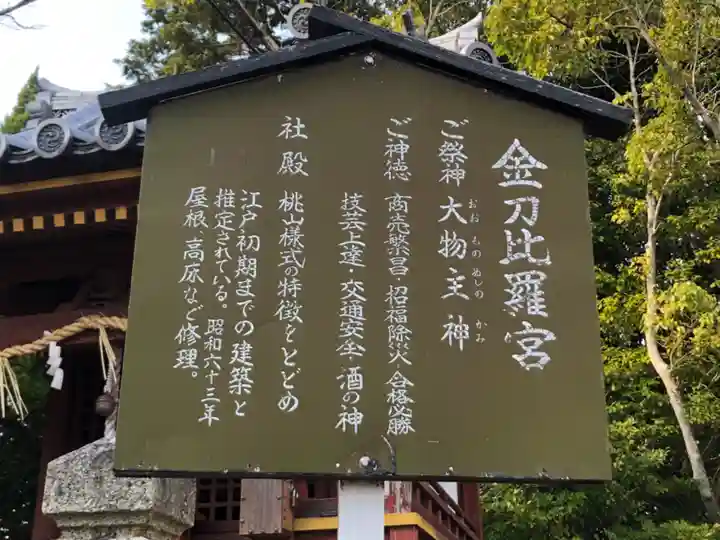 金刀比羅宮
ご祭神 大物主神
おおものぬしのかみ
ご神徳 商売繁昌・招福除災・合格必勝
技芸上達・交通安全・酒の神
社殿 桃山様式の特徴をとどめ
江戸初期までの建築と
推定されている。昭和六十三年
屋根、高床など修理。